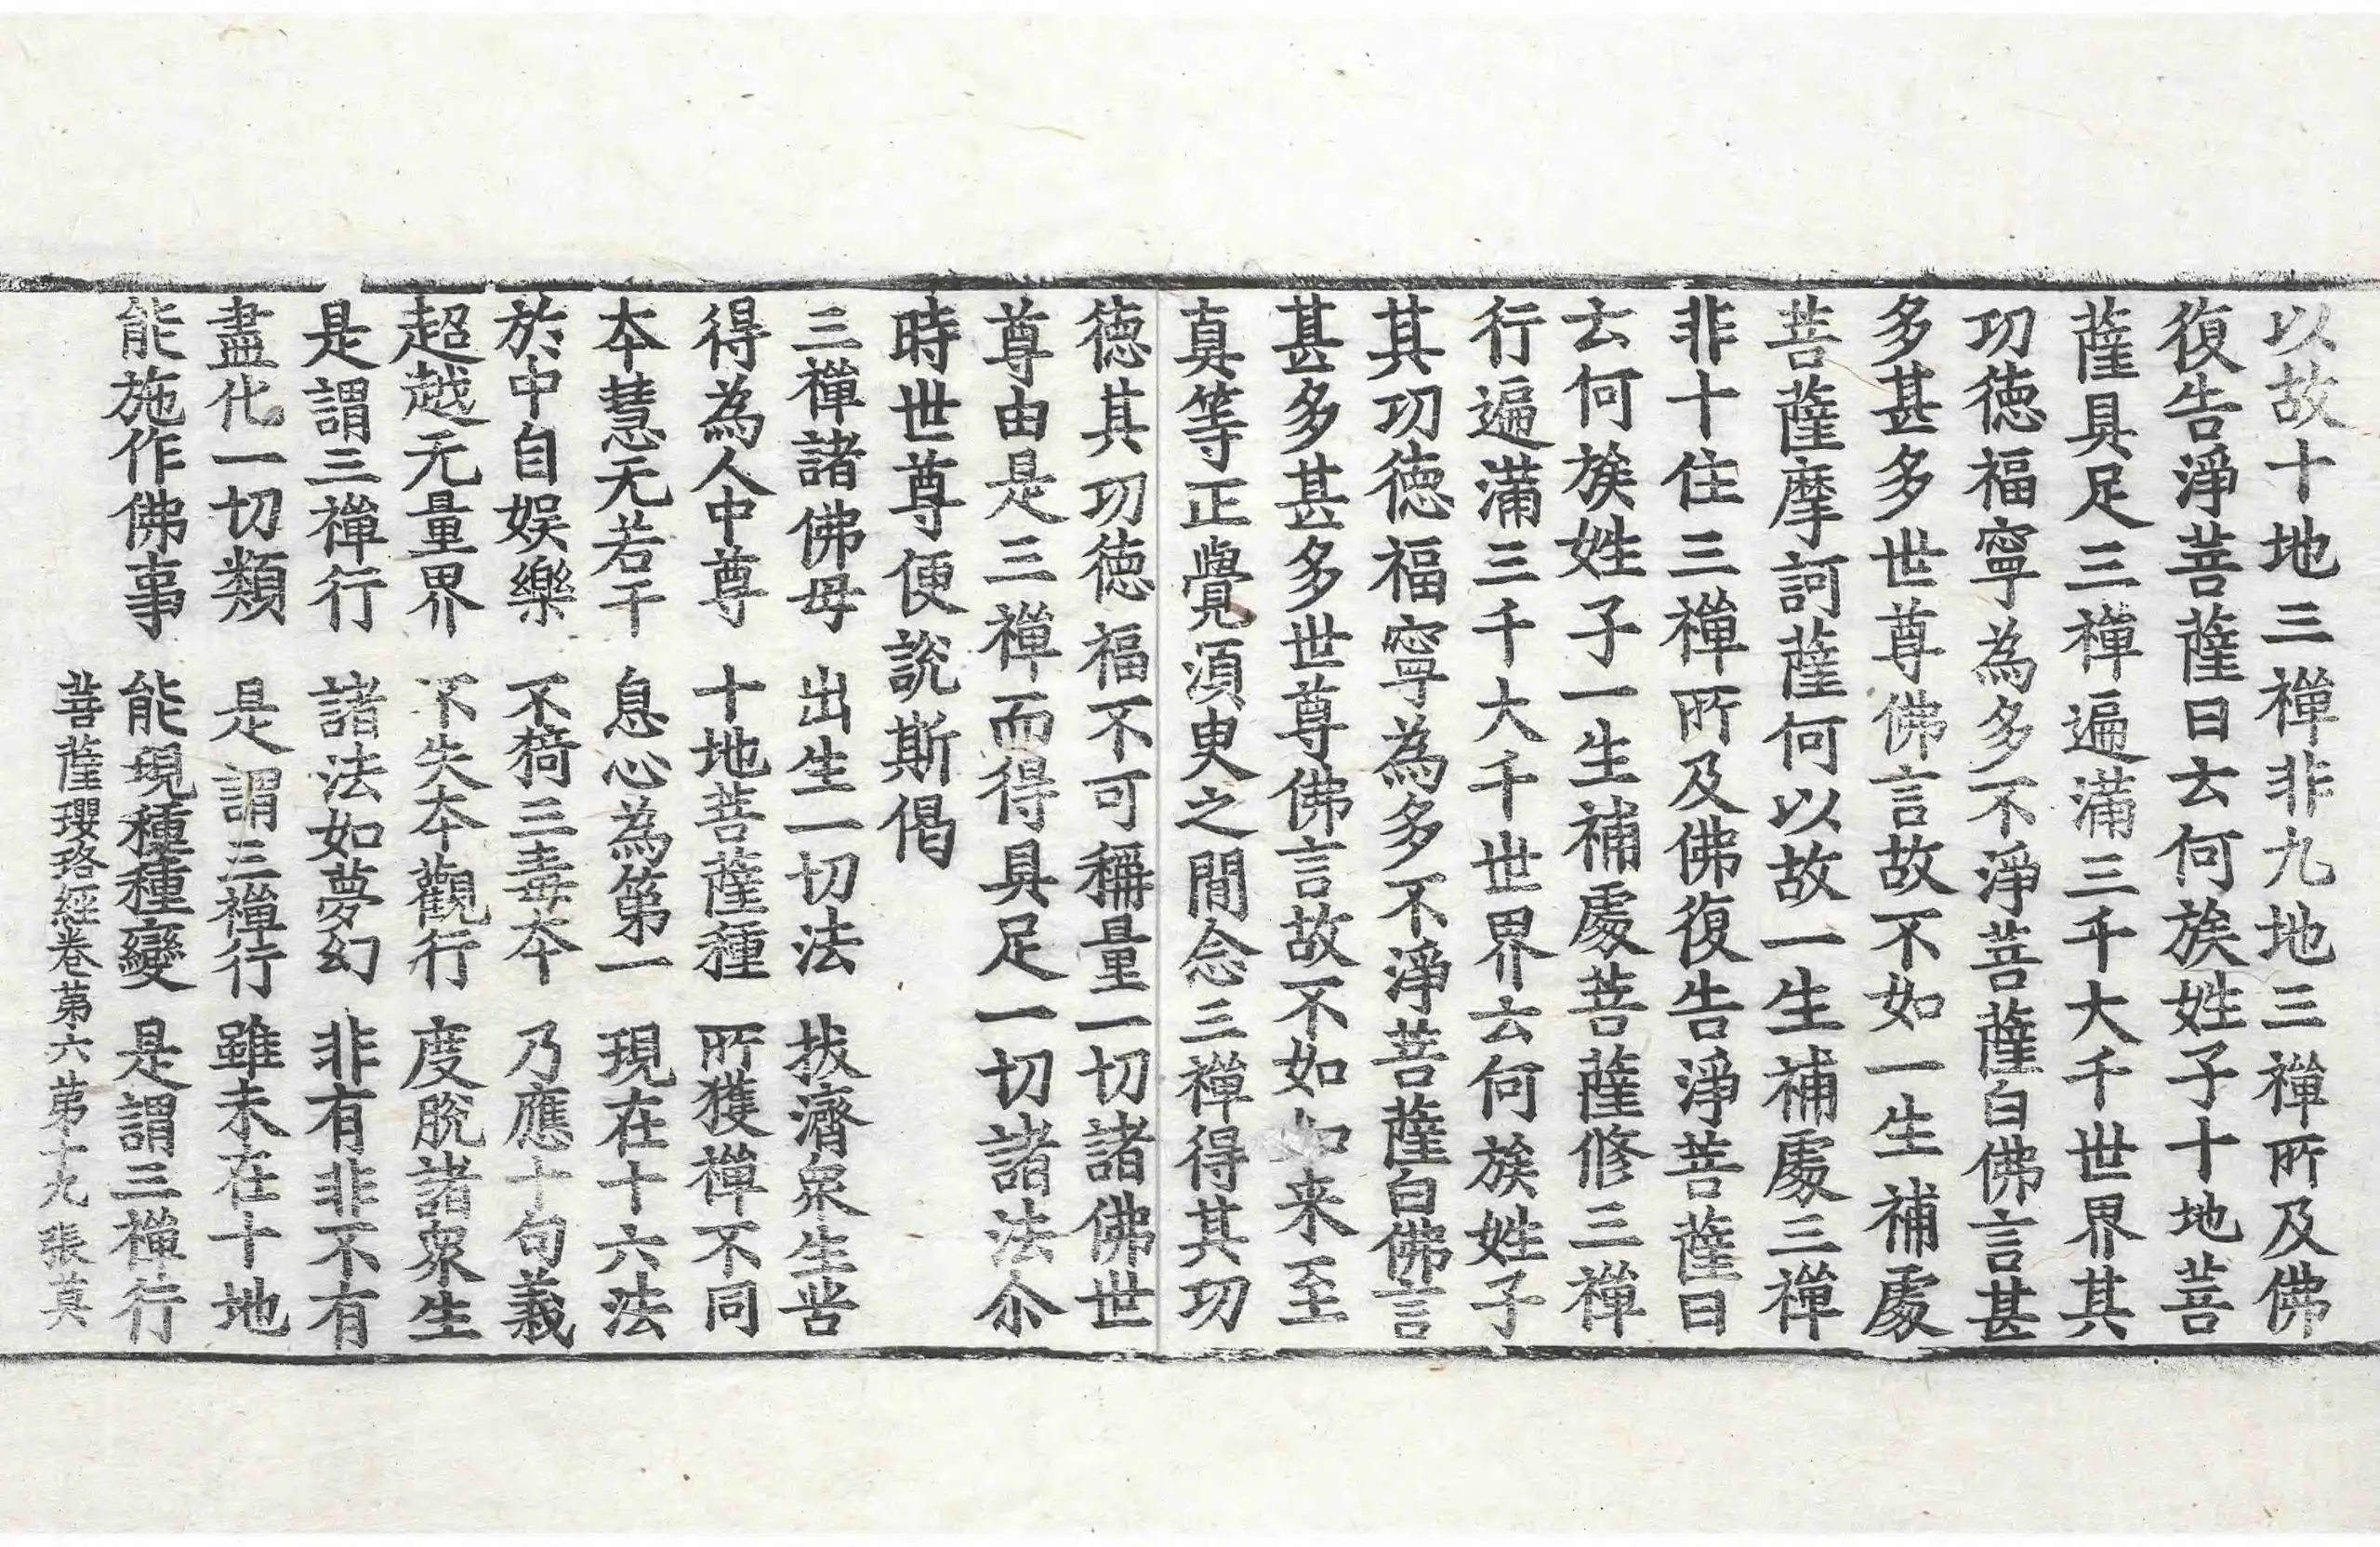 以故十地三禪非九地三禪所及佛
復告淨菩薩曰云何族姓子十地菩
薩具足三禪遍滿三千大千世界其
功德福寧為多不淨菩薩白佛言甚
多甚多世尊佛言故不如一生補處
菩薩摩訶薩何以故一生補處三禪
非十住三禪所及佛復告淨菩薩曰
云何族姓子一生補處菩薩修三禪
行遍滿三千大千世界云何族姓子
其功德福寧為多不淨菩薩白佛言
甚多甚多世尊佛言故不如如来至
真等正覺湏臾之閒念三禪得其功
德其功德福不可稱量一切諸佛世
尊由是三禪而得具足一切諸法尒
時世尊便說斯偈
三禪諸佛母 出生一切法 拔濟衆生苦
得為人中尊 十地菩薩種 所獲禪不同
本慧无若干 息心為第一 現在十六法
於中自娛樂 不猗三毒本 乃應十句義
超越无量界 不失本觀行 度脫諸衆生
是謂三禪行 諸法如夢幻 非有非不有
盡化一切類 是謂三禪行 雖未在十地
能施作佛事 能現種種變 是謂三禪行
菩薩瓔珞經卷第六 第十九張 莫